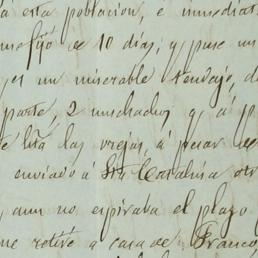 a esta poblacion, é inmediat
me fijó de 10 dias; y puse un
es un miserable tendajo, d
parte, 2 muchachos y, á p
lista las orejas, á pesar de
enviado á Sta Catalina otr
, aun no espiraba el plazo
me retiré a casa de Franco,